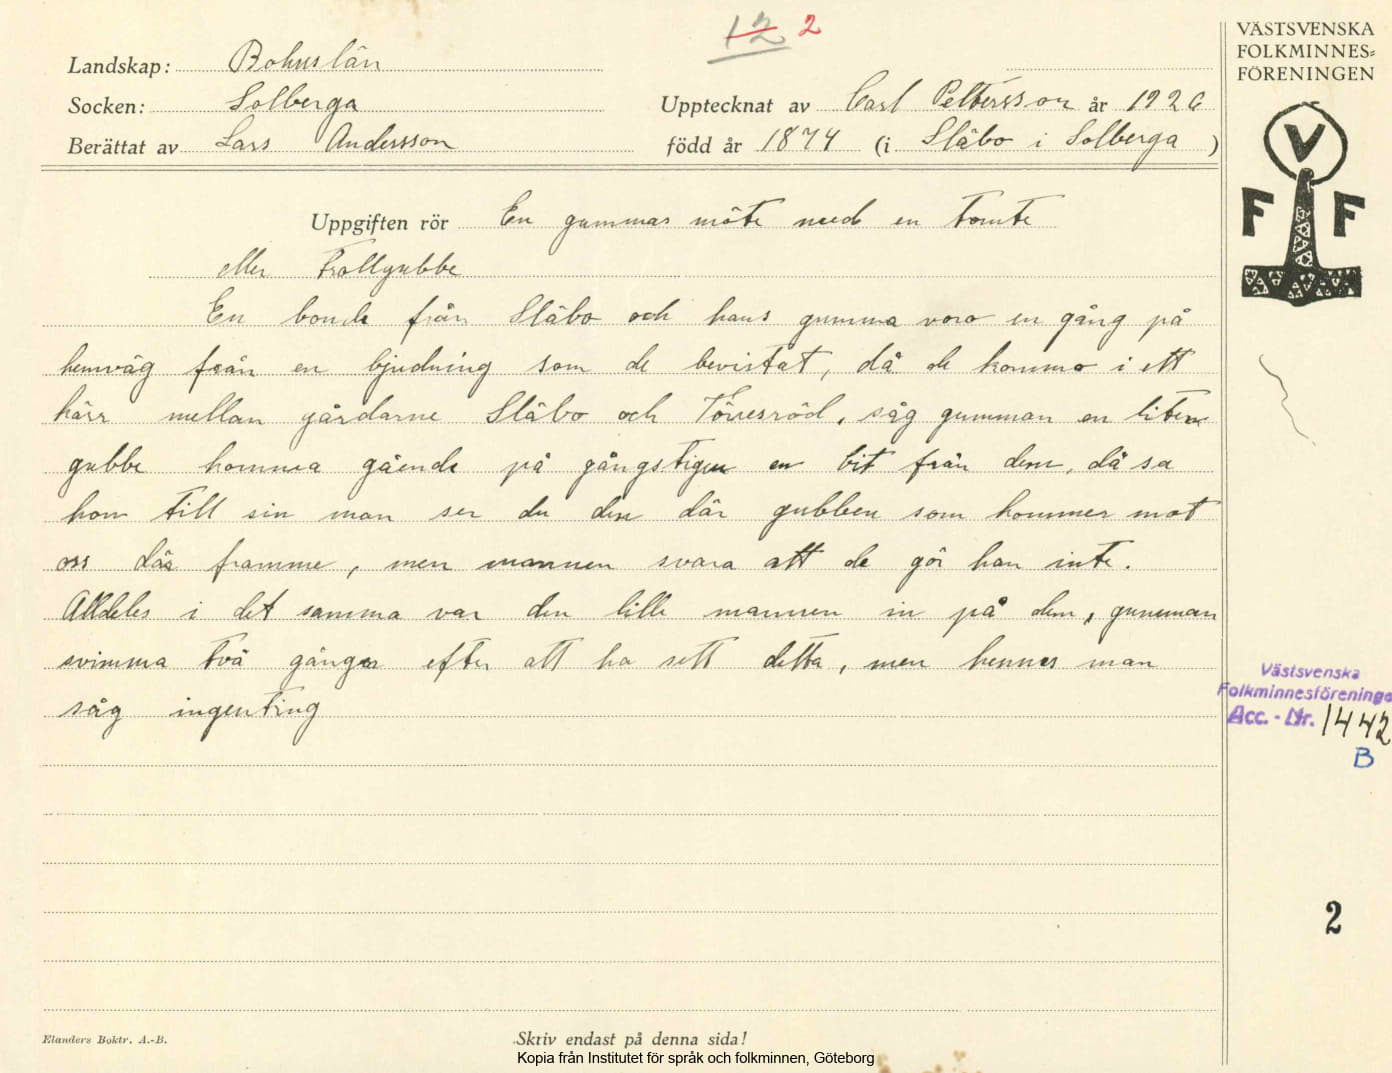 12 2
Landskap: Bohuslän
Socken: Solberga
Berättat av Lars Andersson
Upptecknat av Carl Pettersson år 1926
född år 1874 (i Släbo i Solberga )
Uppgiften rör En gummas möte med en tomte
eller Trollgubbe
En bonde från Släbo och hans gumma voro en gång på
hemväg från en bjudning som de bevistat, då de komma i ett
kärr mellan gårdarne Släbo och Törresröd, såg gumman en liten
gubbe komma gående på gångstigen en bit från dem, då sa
hon till sin man ser du den där gubben som kommer mot
oss där framme, men mannen svara att de gör han inte.
Alldeles i det samma var den lille mannen in på dem, gumman
svimma två gånger efter att ha sett detta, men hennes man
såg ingenting
Elanders Boktr. A.-B.
Skriv endast på denna sida!
Kopia från Institutet för språk och folkminnen, Göteborg
VÄSTSVENSKA
FOLKMINNES=
FÖRENINGEN
V
F F
Västsvenska
Folkminnesföreninge
Acc. - Nr. 1442
B
2